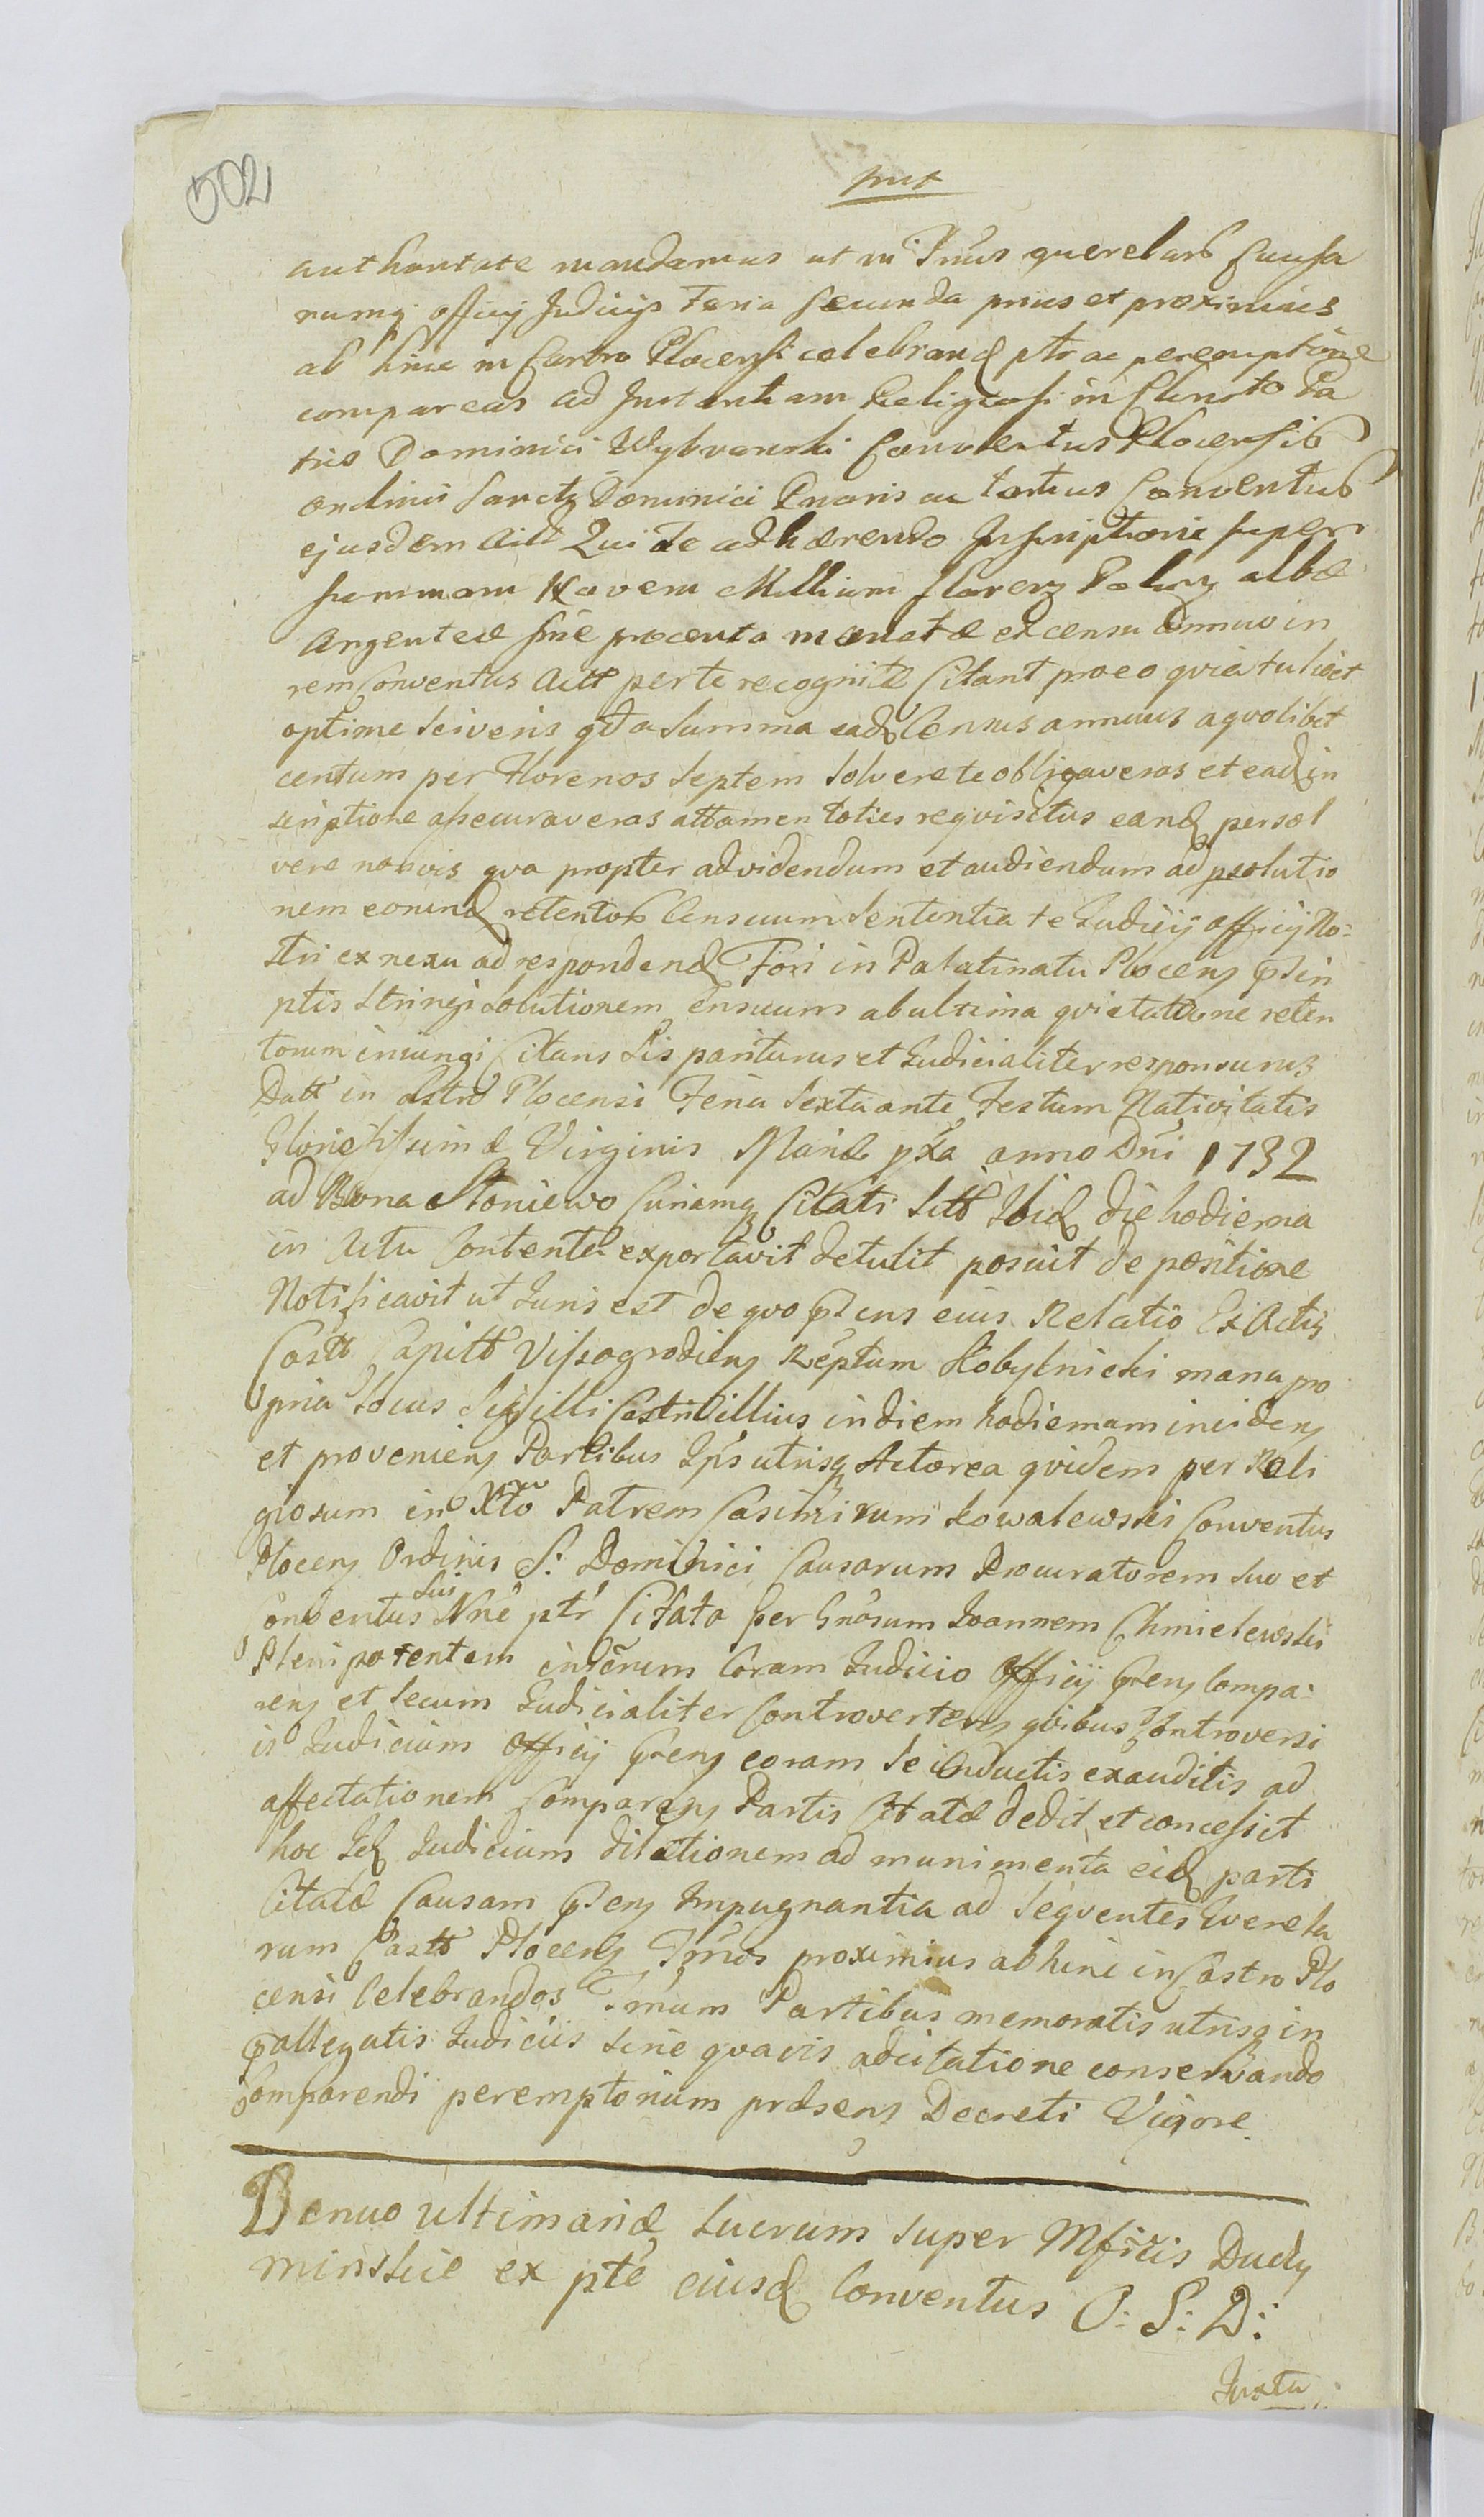 502
authoritate mandamus ut in Tmis querelarb Causa
rumq officij Judicijs Feria Secunda prius et proximius
ab hinc in Castro Plocensi celebrand ptr ac peremptorie
compareas ad Instantiam Religiosi in Christo Pa
tris Dominici Wybranski Conventus Plocensib
ordinis Sancti Dominici Prioris ac totius Conventus
ejusdem Qui te adhærendo Inscriptioni super
summam Novem Millium floren Polon albæ
Argenteæ sine procento monetæ et censu Annuo in
rem Conventus Actt per te recognitæ Citant pro eo quia tu licet
optime Sciveris qd a Summa ead Census annuus a quolibet
centum per Florenos Septem Solvere te obligaveras et ead in
scriptione assecuraveras attamen toties requisitus eand persol
vere non vis qva propter ad videndum et audiendum ad psolutio
nem eorund retentor Censuum Sententia te Judicij officij No=
stri ex nexu ad respondend Fori in Palatinatu Plocens in
ptis Stringi Solutionem Censuum ab ultima qvietatione reten
torum iniungi Citans Sis pariturus et Judicialiter responsurus
Datt in Castro Plocensi Feria Sexta ante Festum Nativitatis
Gloriosissimæ Virginis Mariæ pxa anno Dni 1732
ad Bona Stoniewo Curiamq Citati Sitt Ibid die hodierna
in Actu Contenta exportavit detulit posuit de positione
Notificavit ut Juris est de qvo Pns eius Relatio Ex Actis
Castr Capitt Vissogrodiens Rептum Kobylnicki manu pro
pria Locus Sigilli Castri illius in diem hodiernam incidens
et proveniens Partibus Ips utrisq Actorea qvidem per Reli
giosum in Xto Patrem Casimirum Kowalewski Conventus
Plocens Ordinis S: Dominici Causarum Procuratorem Suo et
Conventus Sui Nne ptr Citata per Gnosum Joannem Chmielewski
Plenipotentem in Coram Judicio Officij Pens Compa:
rens et Secum Judicialiter Controvertens qvibus Controversi
is Judicium Officij Pens coram Se inductis exauditis ad
affectationem Comparens Partis Citatæ dedit et concessit
hoc Id Judicium dilationem ad munimenta eid parti
Citatæ Causam Pens Impugnantia ad Seqventes Qverela
rum Castr Plocens Tmos proximius abhinc in Castro Plo
censi Celebrandos Tmum Partibus memoratis utrisq in
pallegatis Judiciis Sine qvavis adcitatione conservando
Comparendi peremptorium præsens Decreti Vigore.
Denuo ultimariæ Lucrum Super Mficis Duchy
minskie ex pte eiusd Conventus O: S: D:
Juxta